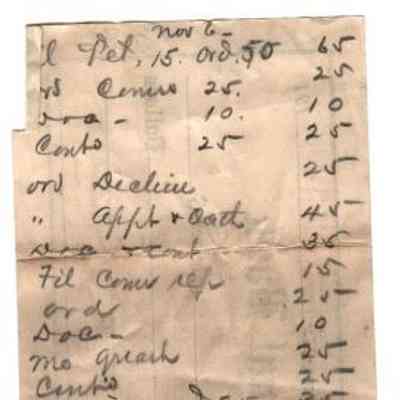 Nov 6-
l Pet, 15. ord. 50 65
rd Comrs 25. 25
Doc - 10. 10
Conto 25 25
ord Decline 25
" Appt & Oath 45
Doc & Cont 35
Fil Comr rep 15
ord 25
Doc - 10
Mo 25
Conto 25